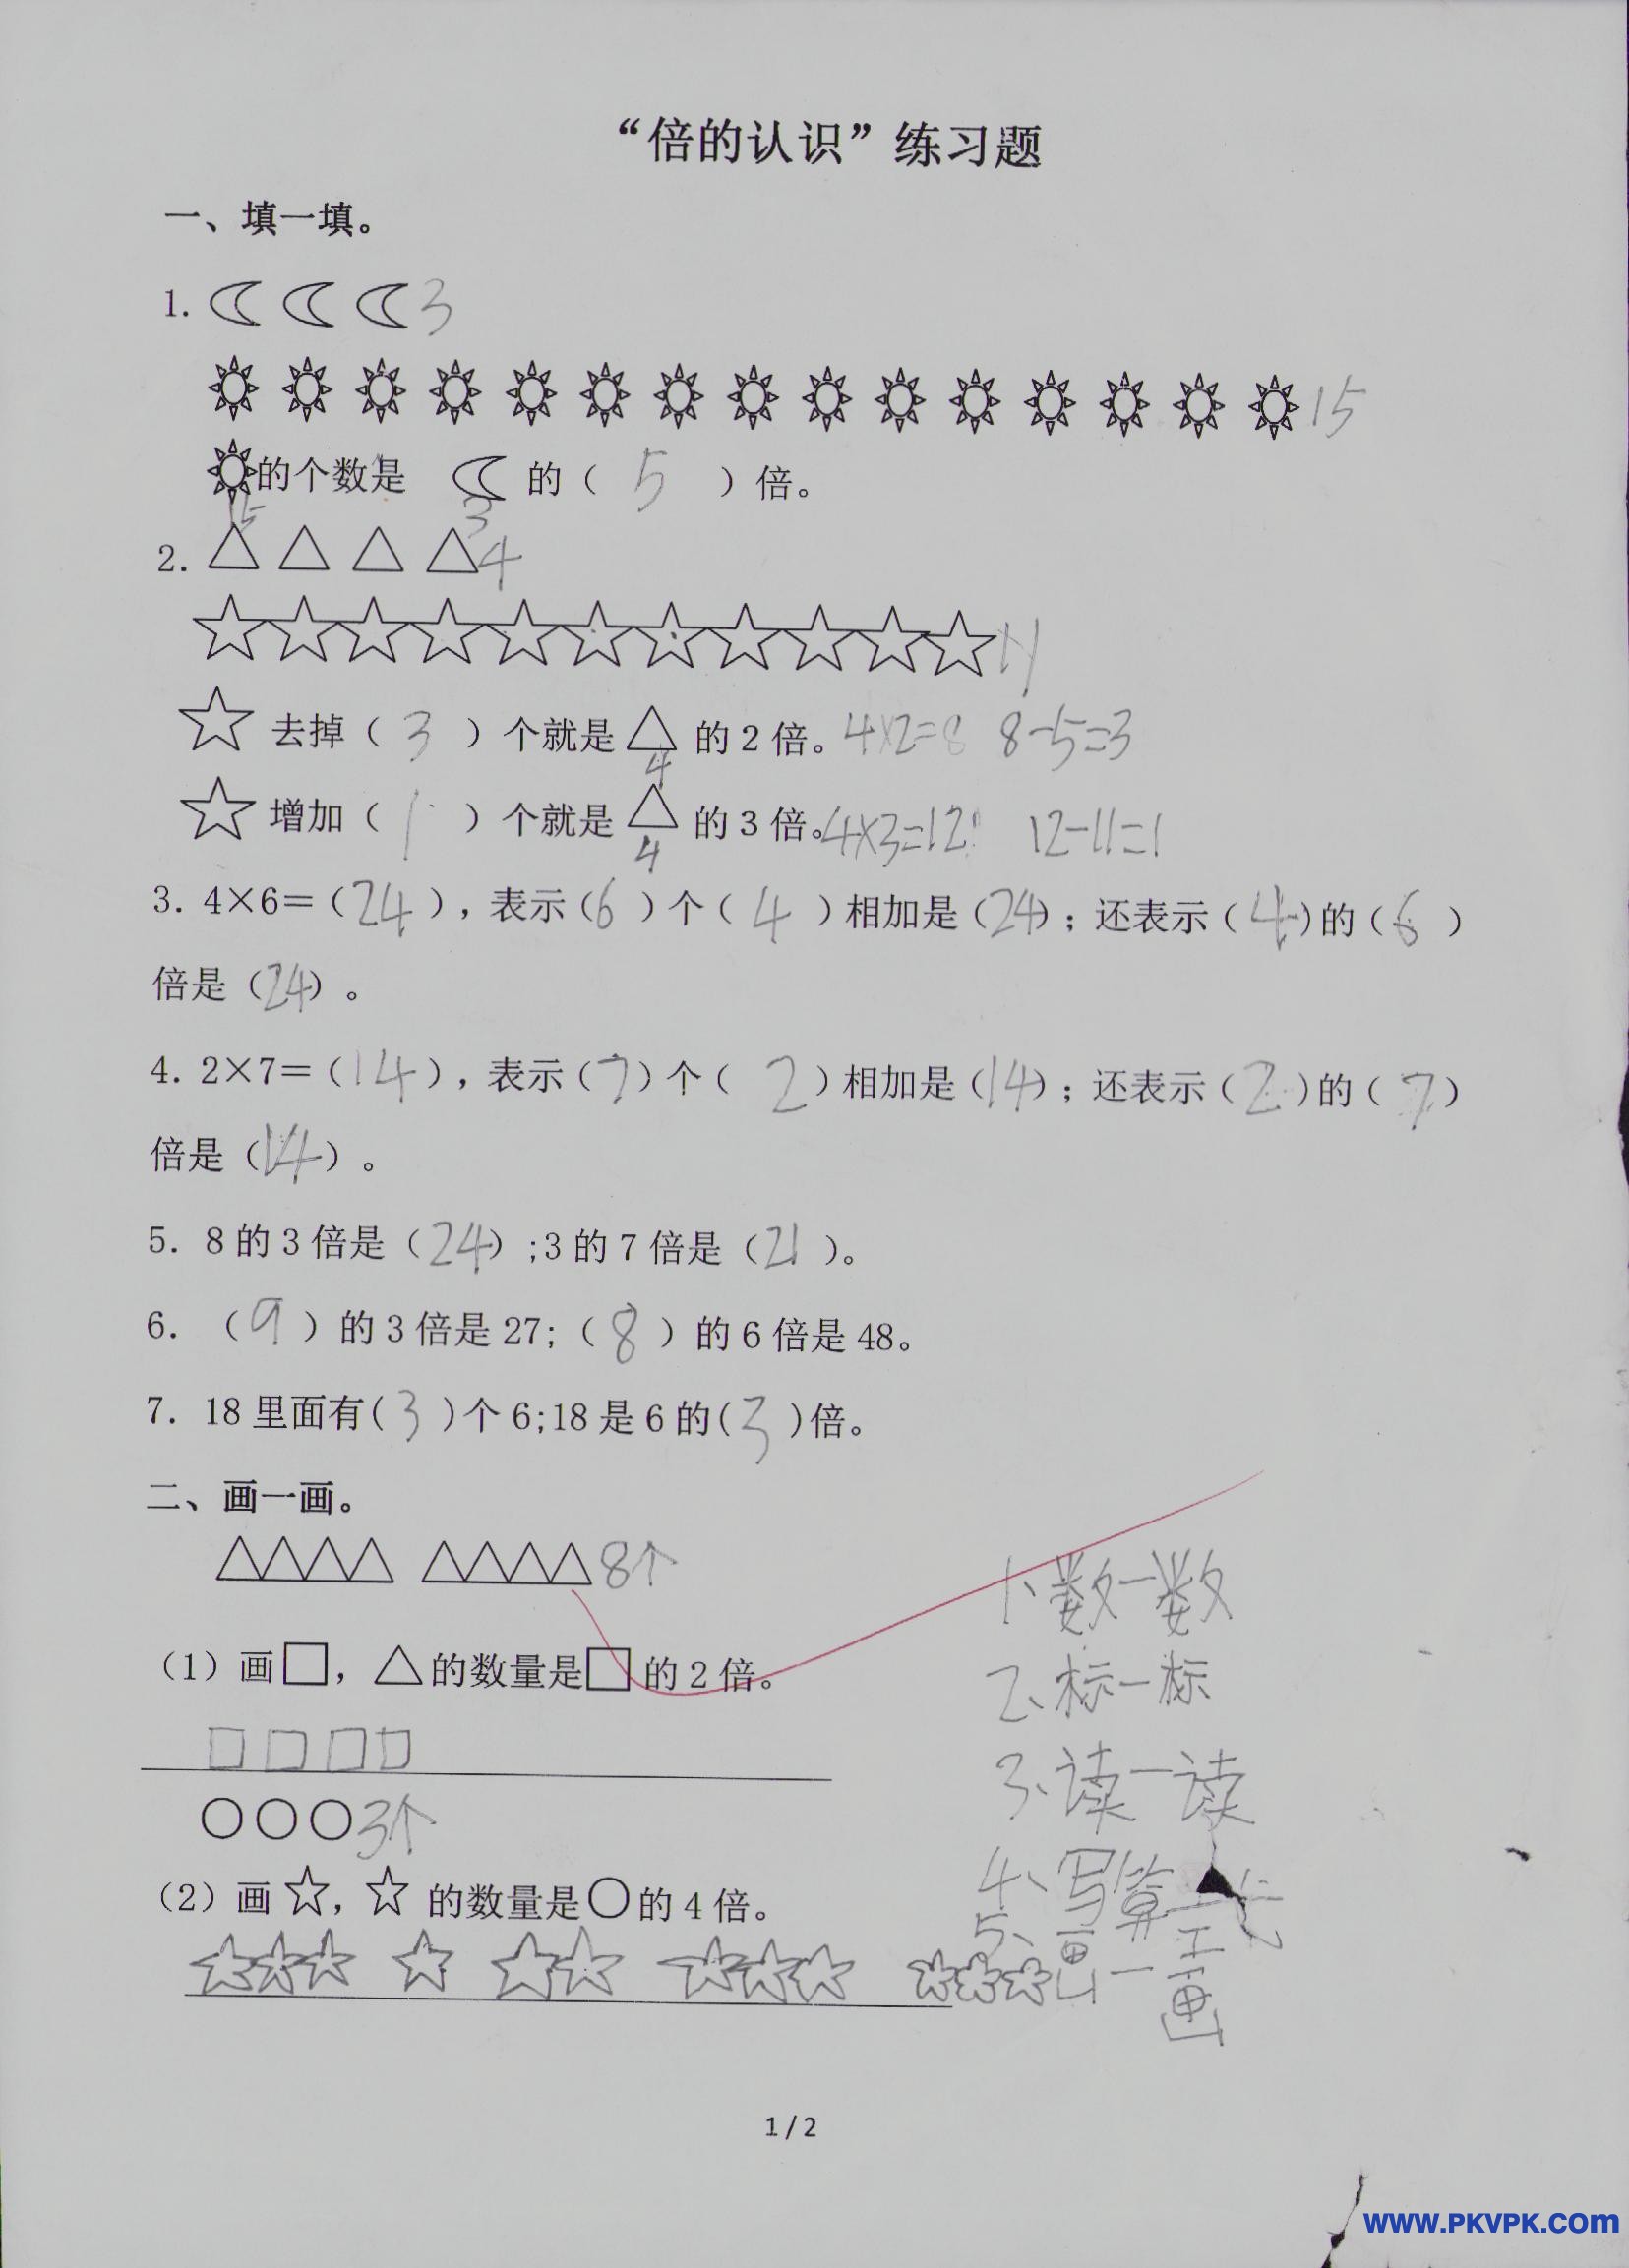 “倍的认识”练习题
一、填一填。
1. 3
15
的个数是 的（ 5 ）倍。
15 3
2. 4
11
去掉（ 3 ）个就是 的 2 倍。4×2=8 8-5=3
4
增加（ 1 ）个就是 的 3 倍。4×3=12 12-11=1
4
3. 4×6＝（24），表示（6）个（ 4 ）相加是（24）；还表示（4）的（6）
倍是（24）。
4. 2×7＝（14），表示（7）个（ 2 ）相加是（14）；还表示（2）的（7）
倍是（14）。
5. 8 的 3 倍是（24）;3 的 7 倍是（21）。
6. （9）的 3 倍是 27;（8）的 6 倍是 48。
7. 18 里面有(3)个 6;18 是 6 的(3)倍。
二、画一画。
8个
1、数一数
（1）画□，△的数量是□的 2 倍。
2、标一标
3、读一读
3个
4、写算式
（2）画☆，☆ 的数量是○的 4 倍。
5、画一画
1 / 2
www.PKVPK.com